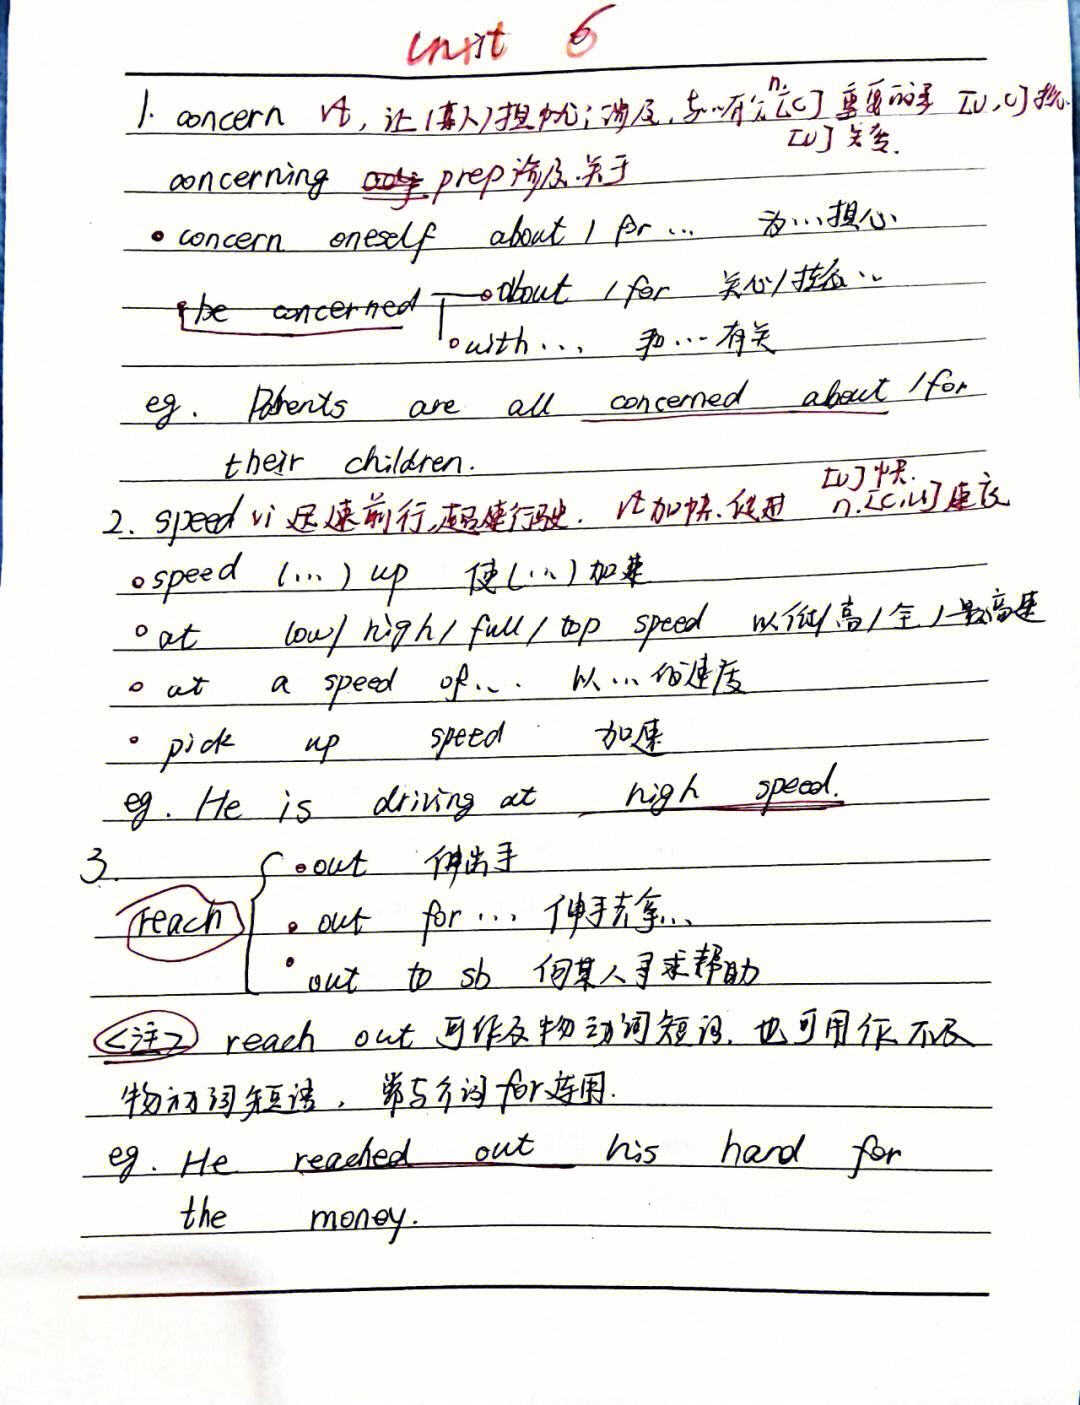 Unit 6
1. concern vt, 让(某人)担忧;涉及,与…有关 n. [C] 重要的事 [U,C] 担忧
[U] 关爱.
concerning prep 涉及.关于
• concern oneself about / for ... 为…担心
• be concerned • about / for 关心/挂念…
• with ... 和…有关
eg. Parents are all concerned about / for
their children.
[U] 快.
2. speed vi 迅速前行,超速行驶. vt 加快.促进 n.[C,U] 速度
• speed (...) up 使(…)加速
• at low/ high/ full / top speed 以低/高/全/最高速
• at a speed of... 以…的速度
• pick up speed 加速
eg. He is driving at high speed.
3. • out 伸出手
reach • out for ... 伸手去拿…
• out to sb 向某人寻求帮助
<注> reach out 可作及物动词短语.也可用作不及
物动词短语,常与介词for连用.
eg. He reached out his hand for
the money.